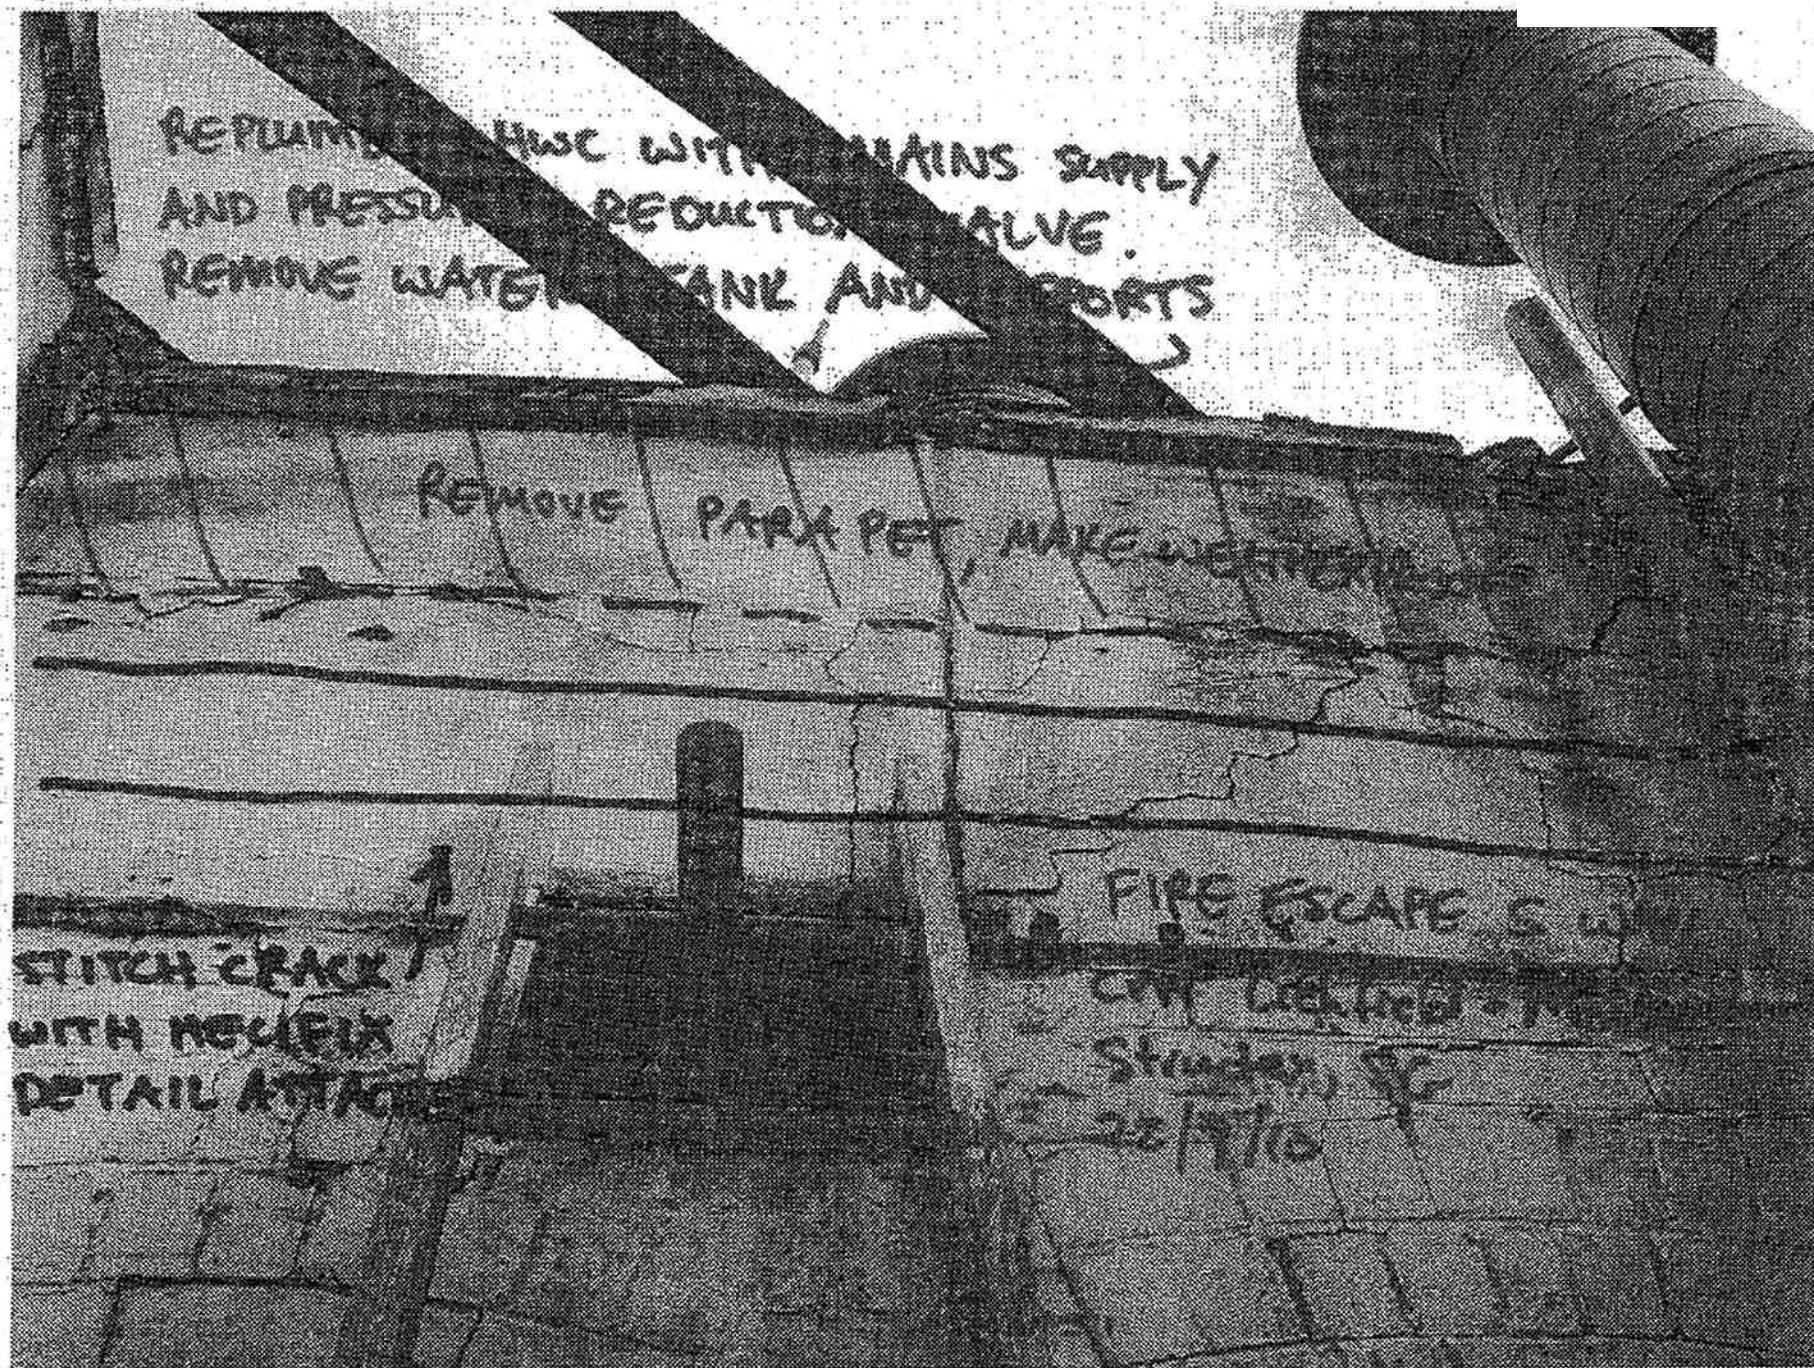 REPLUMB HWC WITH MAINS SUPPLY
AND PRESSURE REDUCTION VALVE.
REMOVE WATER TANK AND SUPPORTS
REMOVE PARAPET, MAKE WEATHERTIGHT
STITCH CRACK
WITH HELIFIX
DETAIL ATTACHED
FIRE ESCAPE S W
Structex,
22/9/10